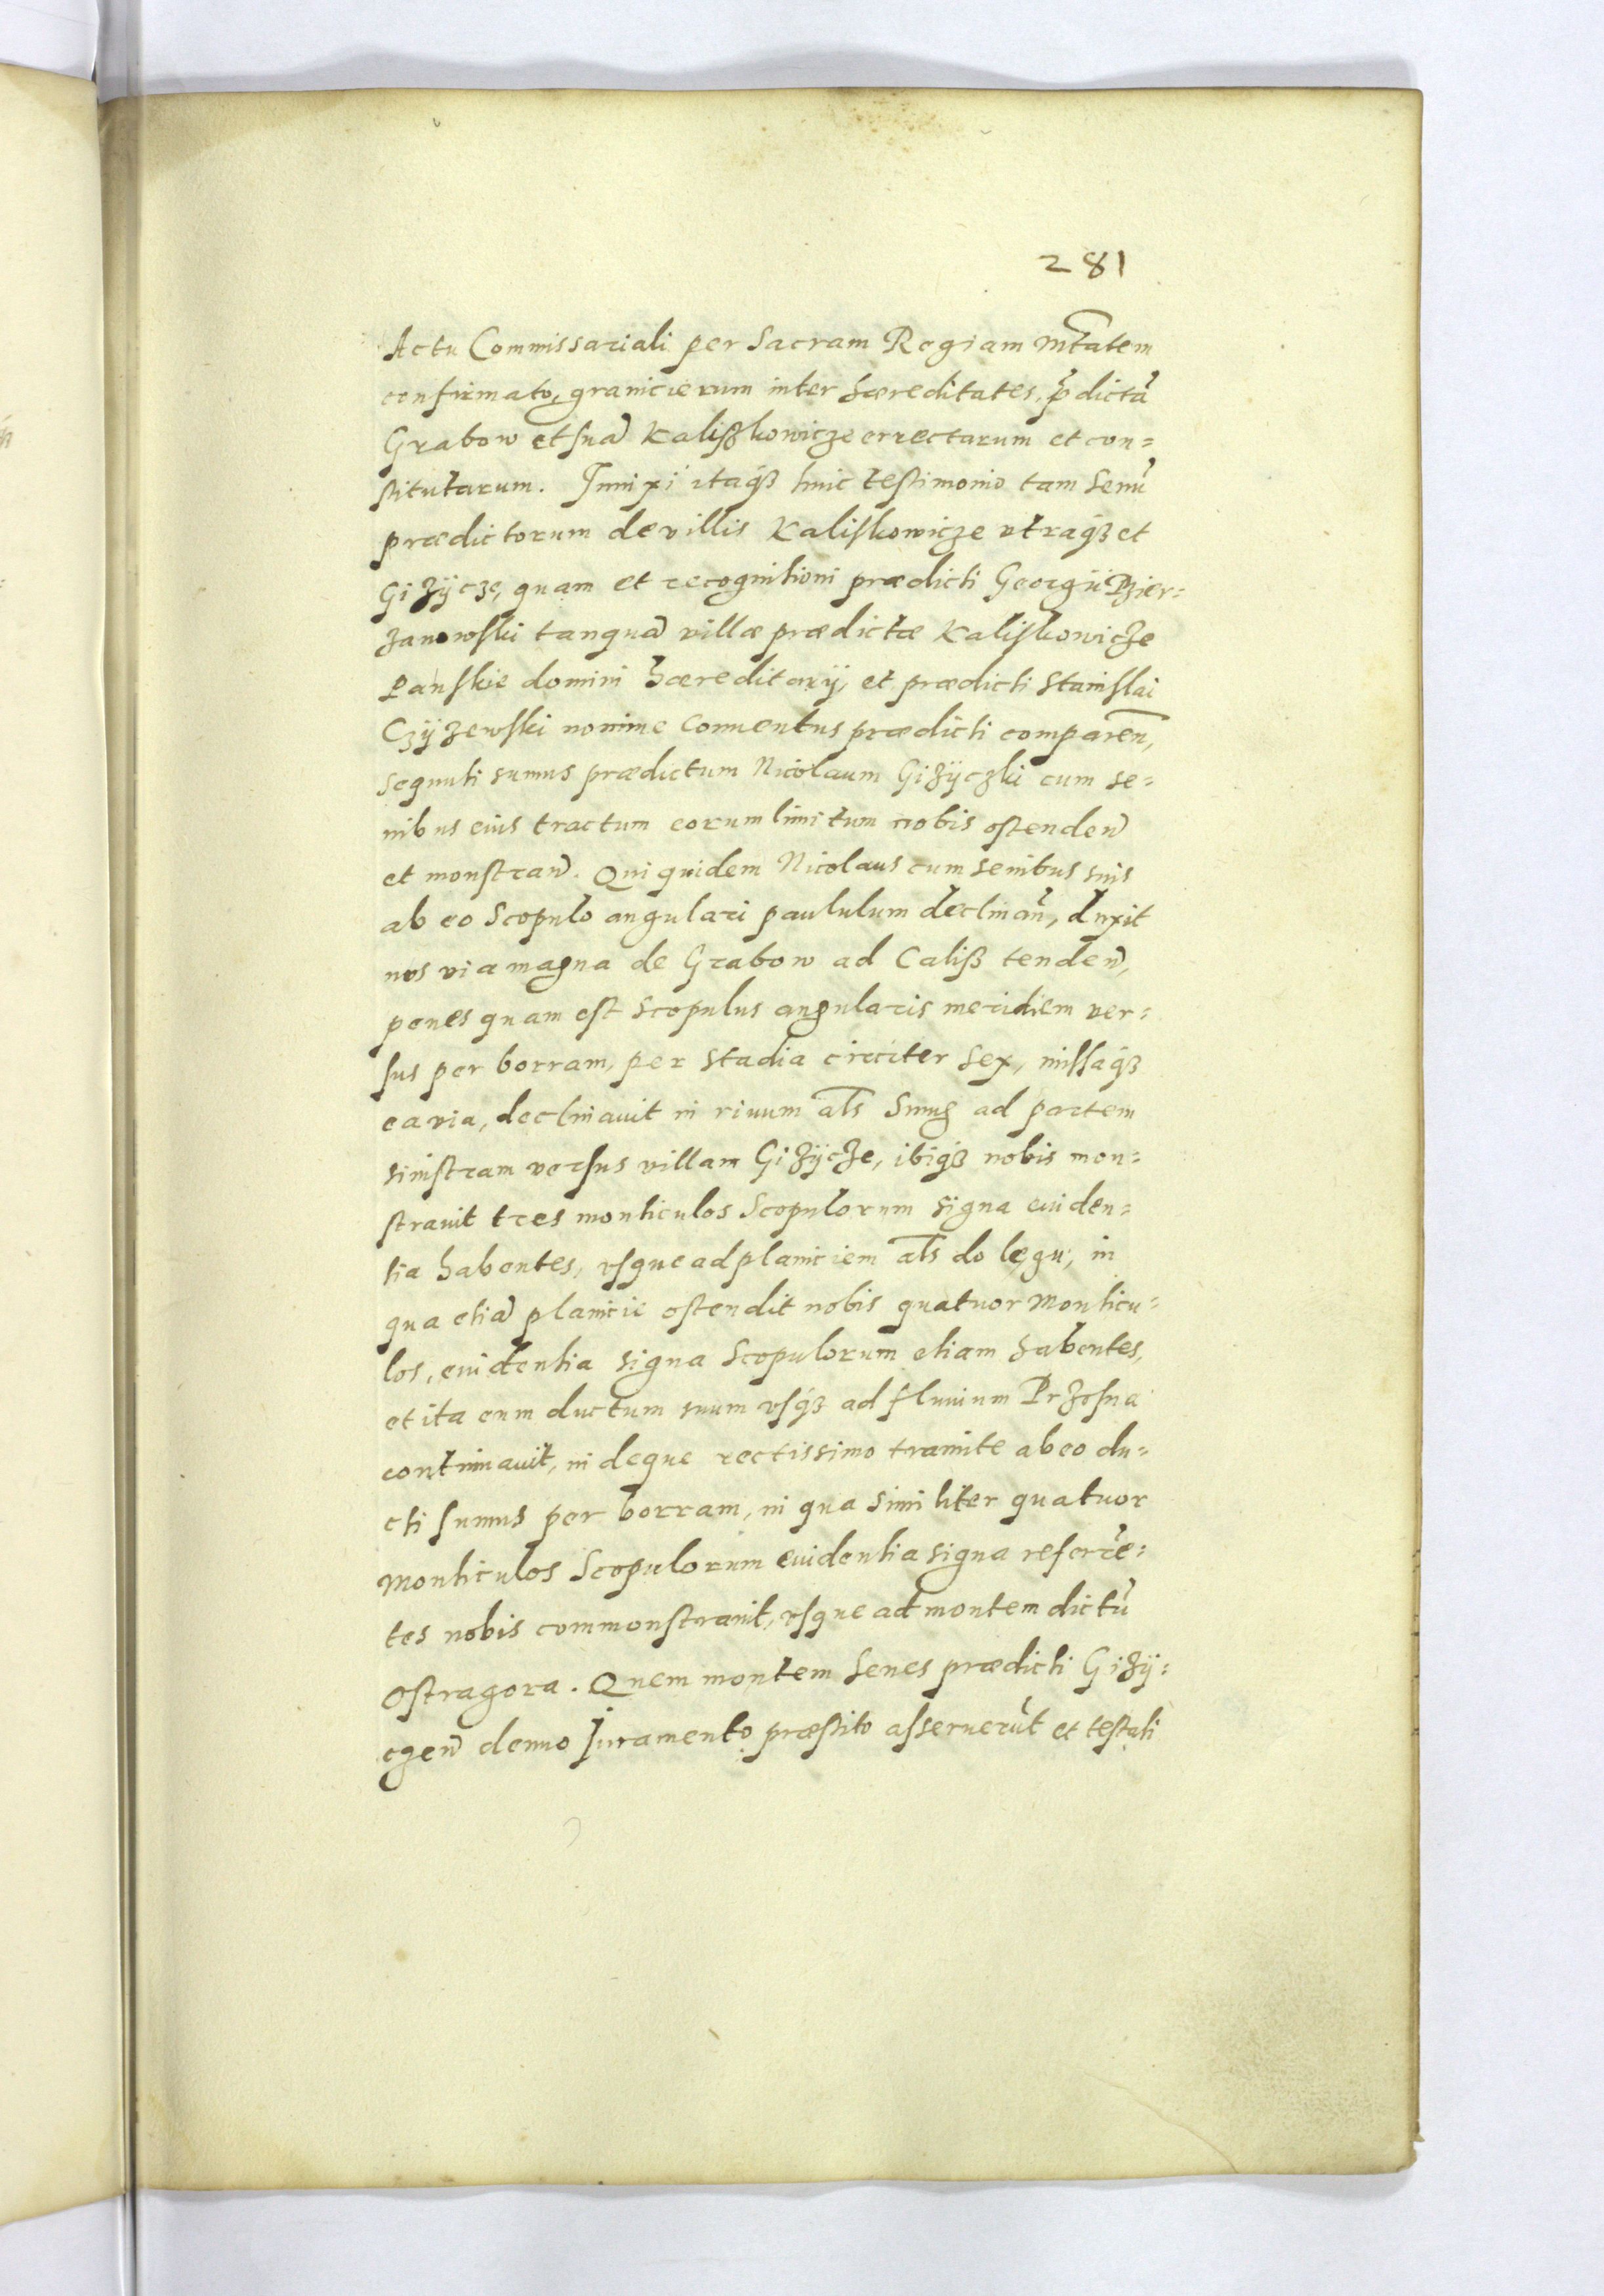 281
Actu Commissariali per Sacram Regiam Mtatem
confirmato, granicierum inter hæreditates, p̃dictã
Grabow et suã Kalißkowicze errectarum et con=
stitutarum. Innixi itaqȝ huic testimonio tam Senũ
prædictorum de villis Kaliskowicze vtraqȝ et
Giżÿcze, quam et recognitioni prædicti Georgii Pzier=
zanowski tanquã villæ prædictæ Kaliskowicze
Panskie domini hæreditarÿ, et prædicti Stanislai
Czÿzewski nomine Conuentus prædicti comparen̄,
secuti sumus prædictum Nicolaum Giżÿczki cum se=
nibus eius tractum eorum limitum nobis ostenden̄
et monstran̄. Qui quidem Nicolaus cum senibus suis
ab eo Scopulo angulari paululum declinan̄, duxit
nos via magna de Grabow ad Caliß tenden̄,
penes quam est Scopulus angularis meridiem ver=
sus per borram, per stadia circiter sex, missaqȝ
ea via, declinauit in riuum als Smug ad partem
sinistram versus villam Giżÿcze, ibiqȝ nobis mon=
strauit tres monticulos Scopulorum signa euiden=
tia habentes, vsque ad planiciem als do lęgu, in
qua etiã planicie ostendit nobis quatuor Monticu=
los, euidentia signa Scopulorum etiam habentes,
et ita eum ductum suum vsqȝ ad fluuium Przosna
continuauit, indeque rectissimo tramite ab eo du=
cti sumus per borram, in qua similiter quatuor
Monticulos Scopulorum euidentia signa referẽ=
tes nobis commonstrauit, vsque ad montem dictũ
Ostragora. Quem montem Senes prædicti Giżÿ=
czen̄ denuo Juramento præstito asseruerũt et testati